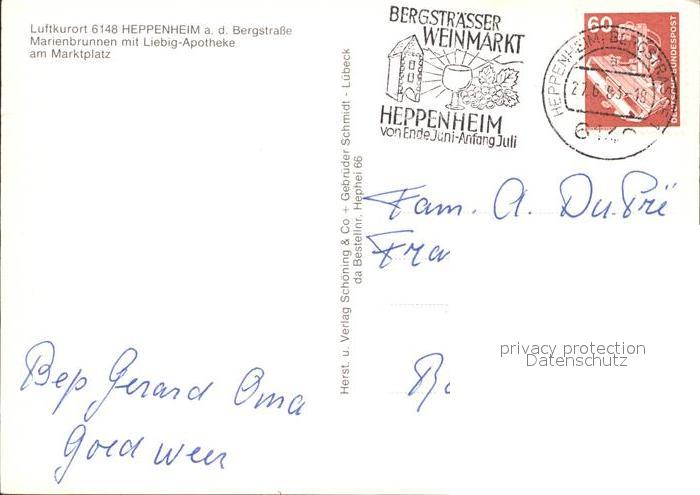 Luftkurort 6148 HEPPENHEIM a. d. Bergstraße
Marienbrunnen mit Liebig-Apotheke
am Marktplatz
BERGSTRÄSSER
WEINMARKT
HEPPENHEIM
von Ende Juni-Anfang Juli
60
DEUTSCHE BUNDESPOST
HEPPENHEIM, BERGSTR
Herst. u. Verlag Schöning & Co + Gebrüder Schmidt - Lübeck
da Bestellnr. Hephei 66
Fam. A. Du Prè
Fra
privacy protection
Datenschutz
Bep Gerard Oma
Goed weer